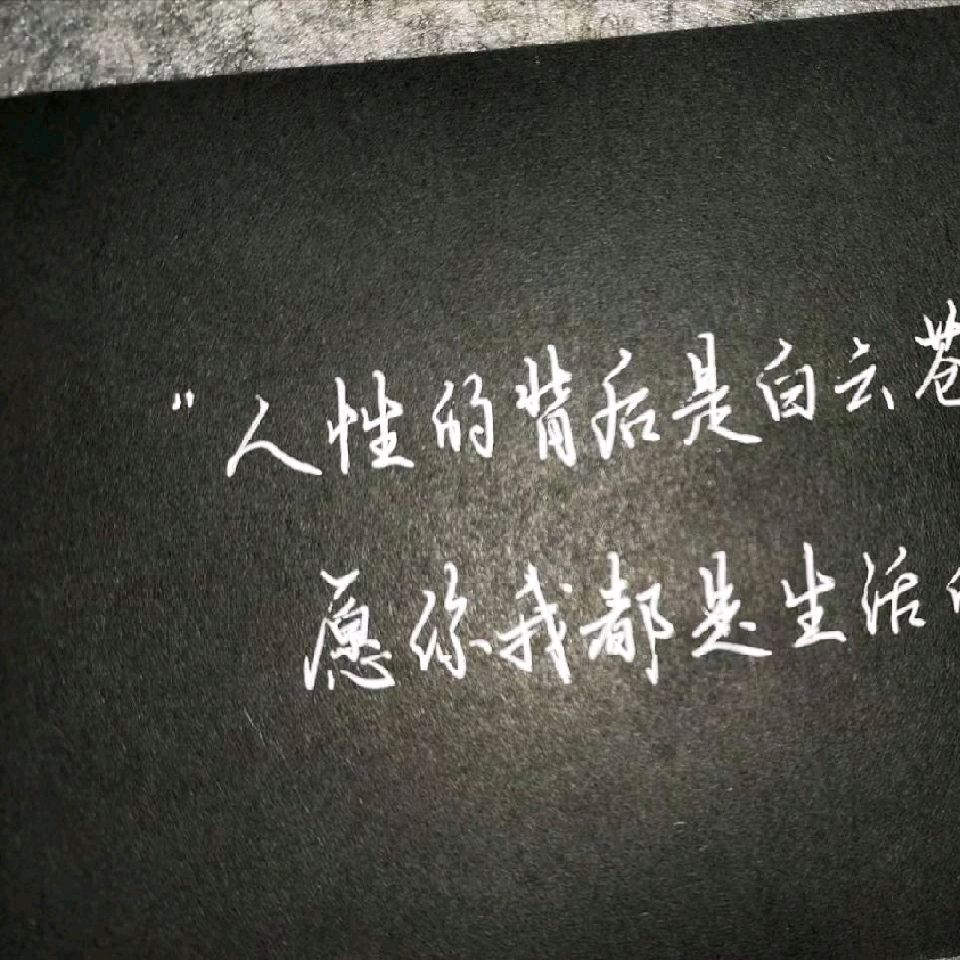 “人性的背后是白云苍
愿你我都是生活